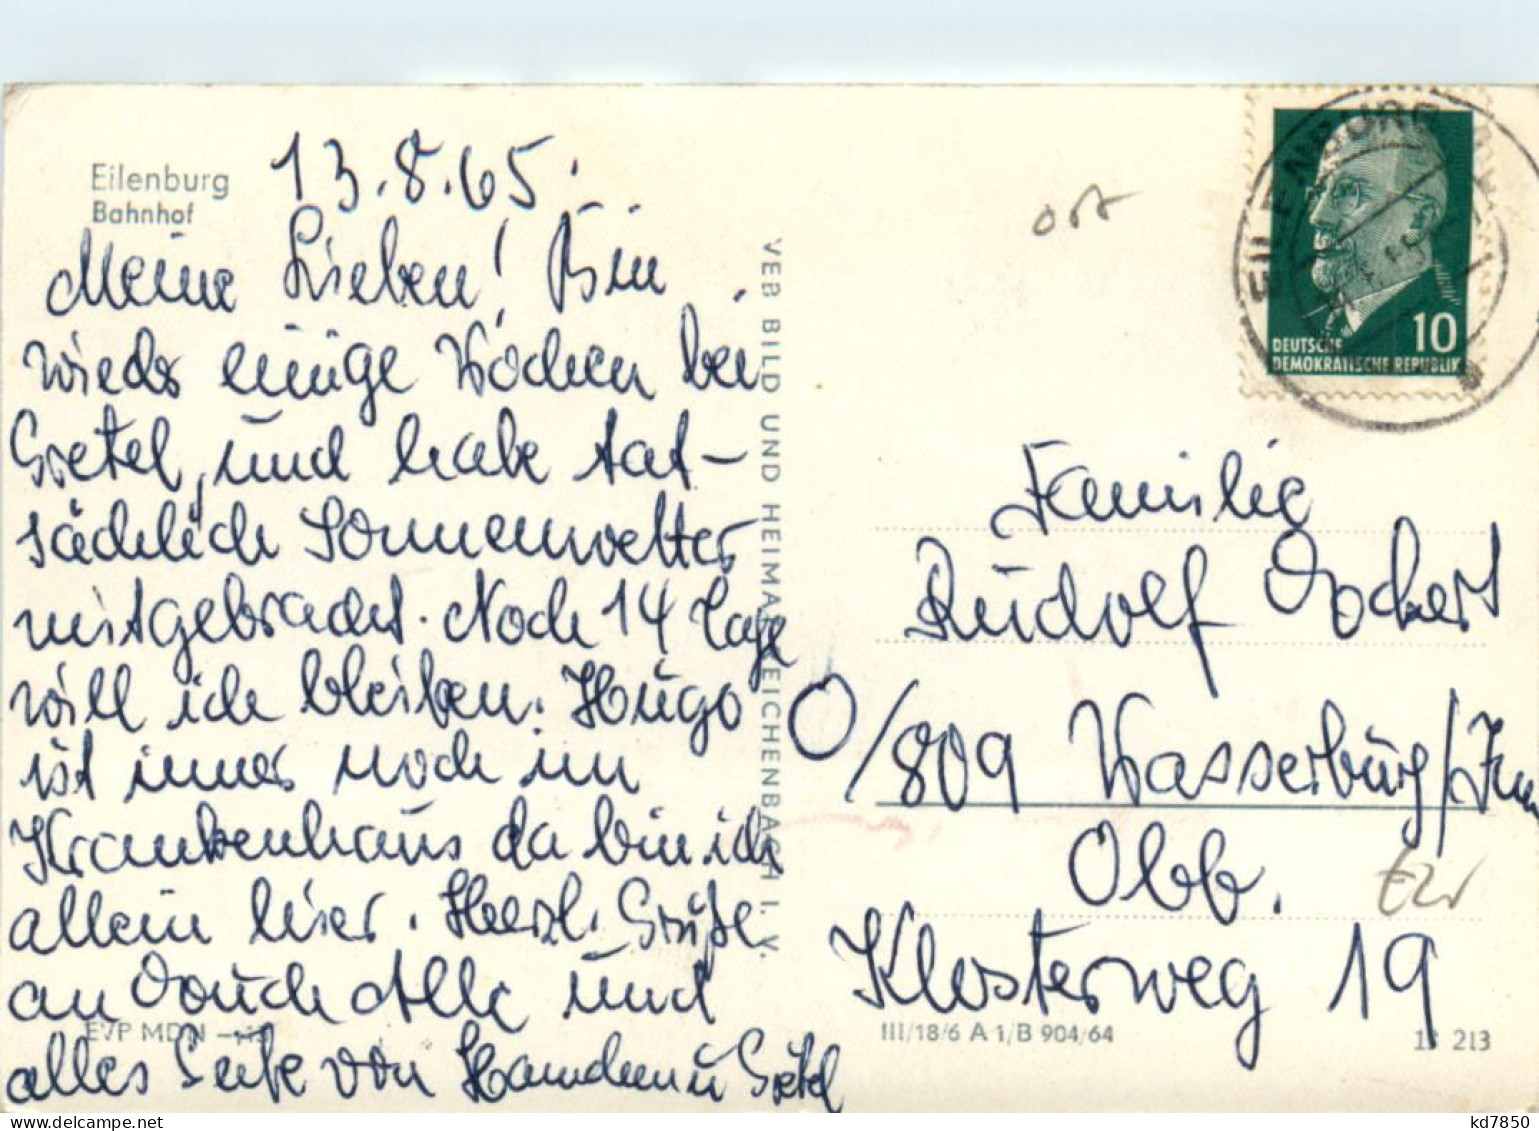 Eilenburg
Bahnhof
13.8.65.
Meine Lieben! Bin
wieder einige Wochen bei
Gretel, und habe tat-
sächlich Sonnenwetter
mitgebracht. Noch 14 Tage
will ich bleiben. Hugo
ist immer noch im
Krankenhaus da bin ich
allein hier. Herzl. Grüße
an Euch Alle und
alles Gute von u Gretel
EVP MDN
VEB BILD UND HEIMAT REICHENBACH I. V.
ort
EILENBURG
DEUTSCHE
DEMOKRATISCHE REPUBLIK
10
Familie
Rudolf
O/809 Wasserburg/Inn
Obb.
Klosterweg 19
III/18/6 A 1/B 904/64
213
kd7850